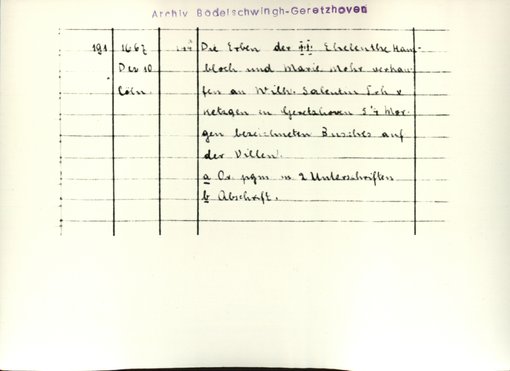 Archiv Bodelschwingh-Geretzhoven
191 1667 Die Erben der ‡‡ Eheleuthe Ham-
Dez 10 bloch und Marie Mohr verkau-
Cöln. fen an Wilh. Salentin Frh v
netzgen in Geretzhoven 5 Mor-
gen bezeichneten Busches auf
der Villen.
a Or. pgm m 2 Unterschriften
b Abschrift.